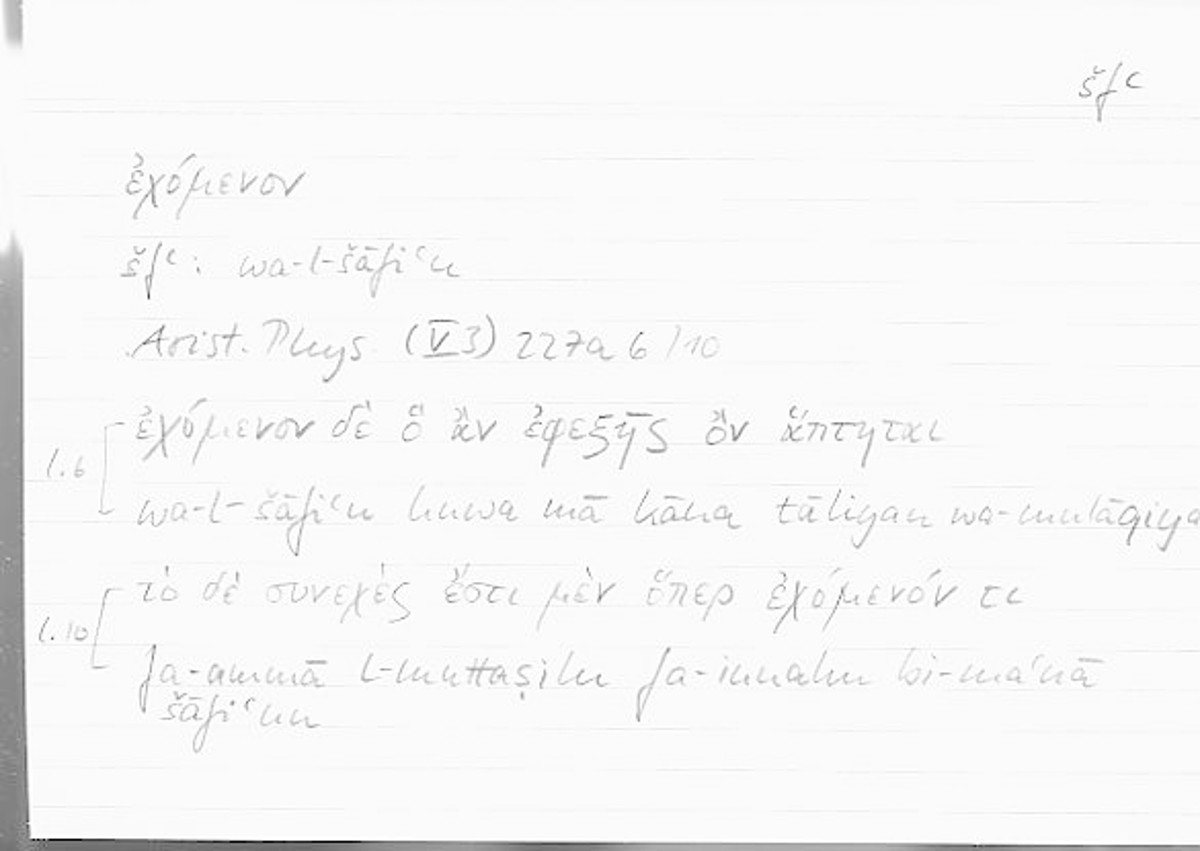 šfʿ
ἐχόμενον
šfʿ: wa-l-šāfiʿu
Arist. Phys. (V3) 227a 6/10
l.6
ἐχόμενον δὲ ὃ ἂν ἐφεξῆς ὂν ἅπτηται
wa-l-šāfiʿu huwa mā kāna tāliyan wa-mulāqiya
l.10
τὸ δὲ συνεχὲς ἔστι μὲν ὅπερ ἐχόμενόν τι
fa-ammā l-muttaṣilu fa-innahu bi-maʿnā
šāfiʿun